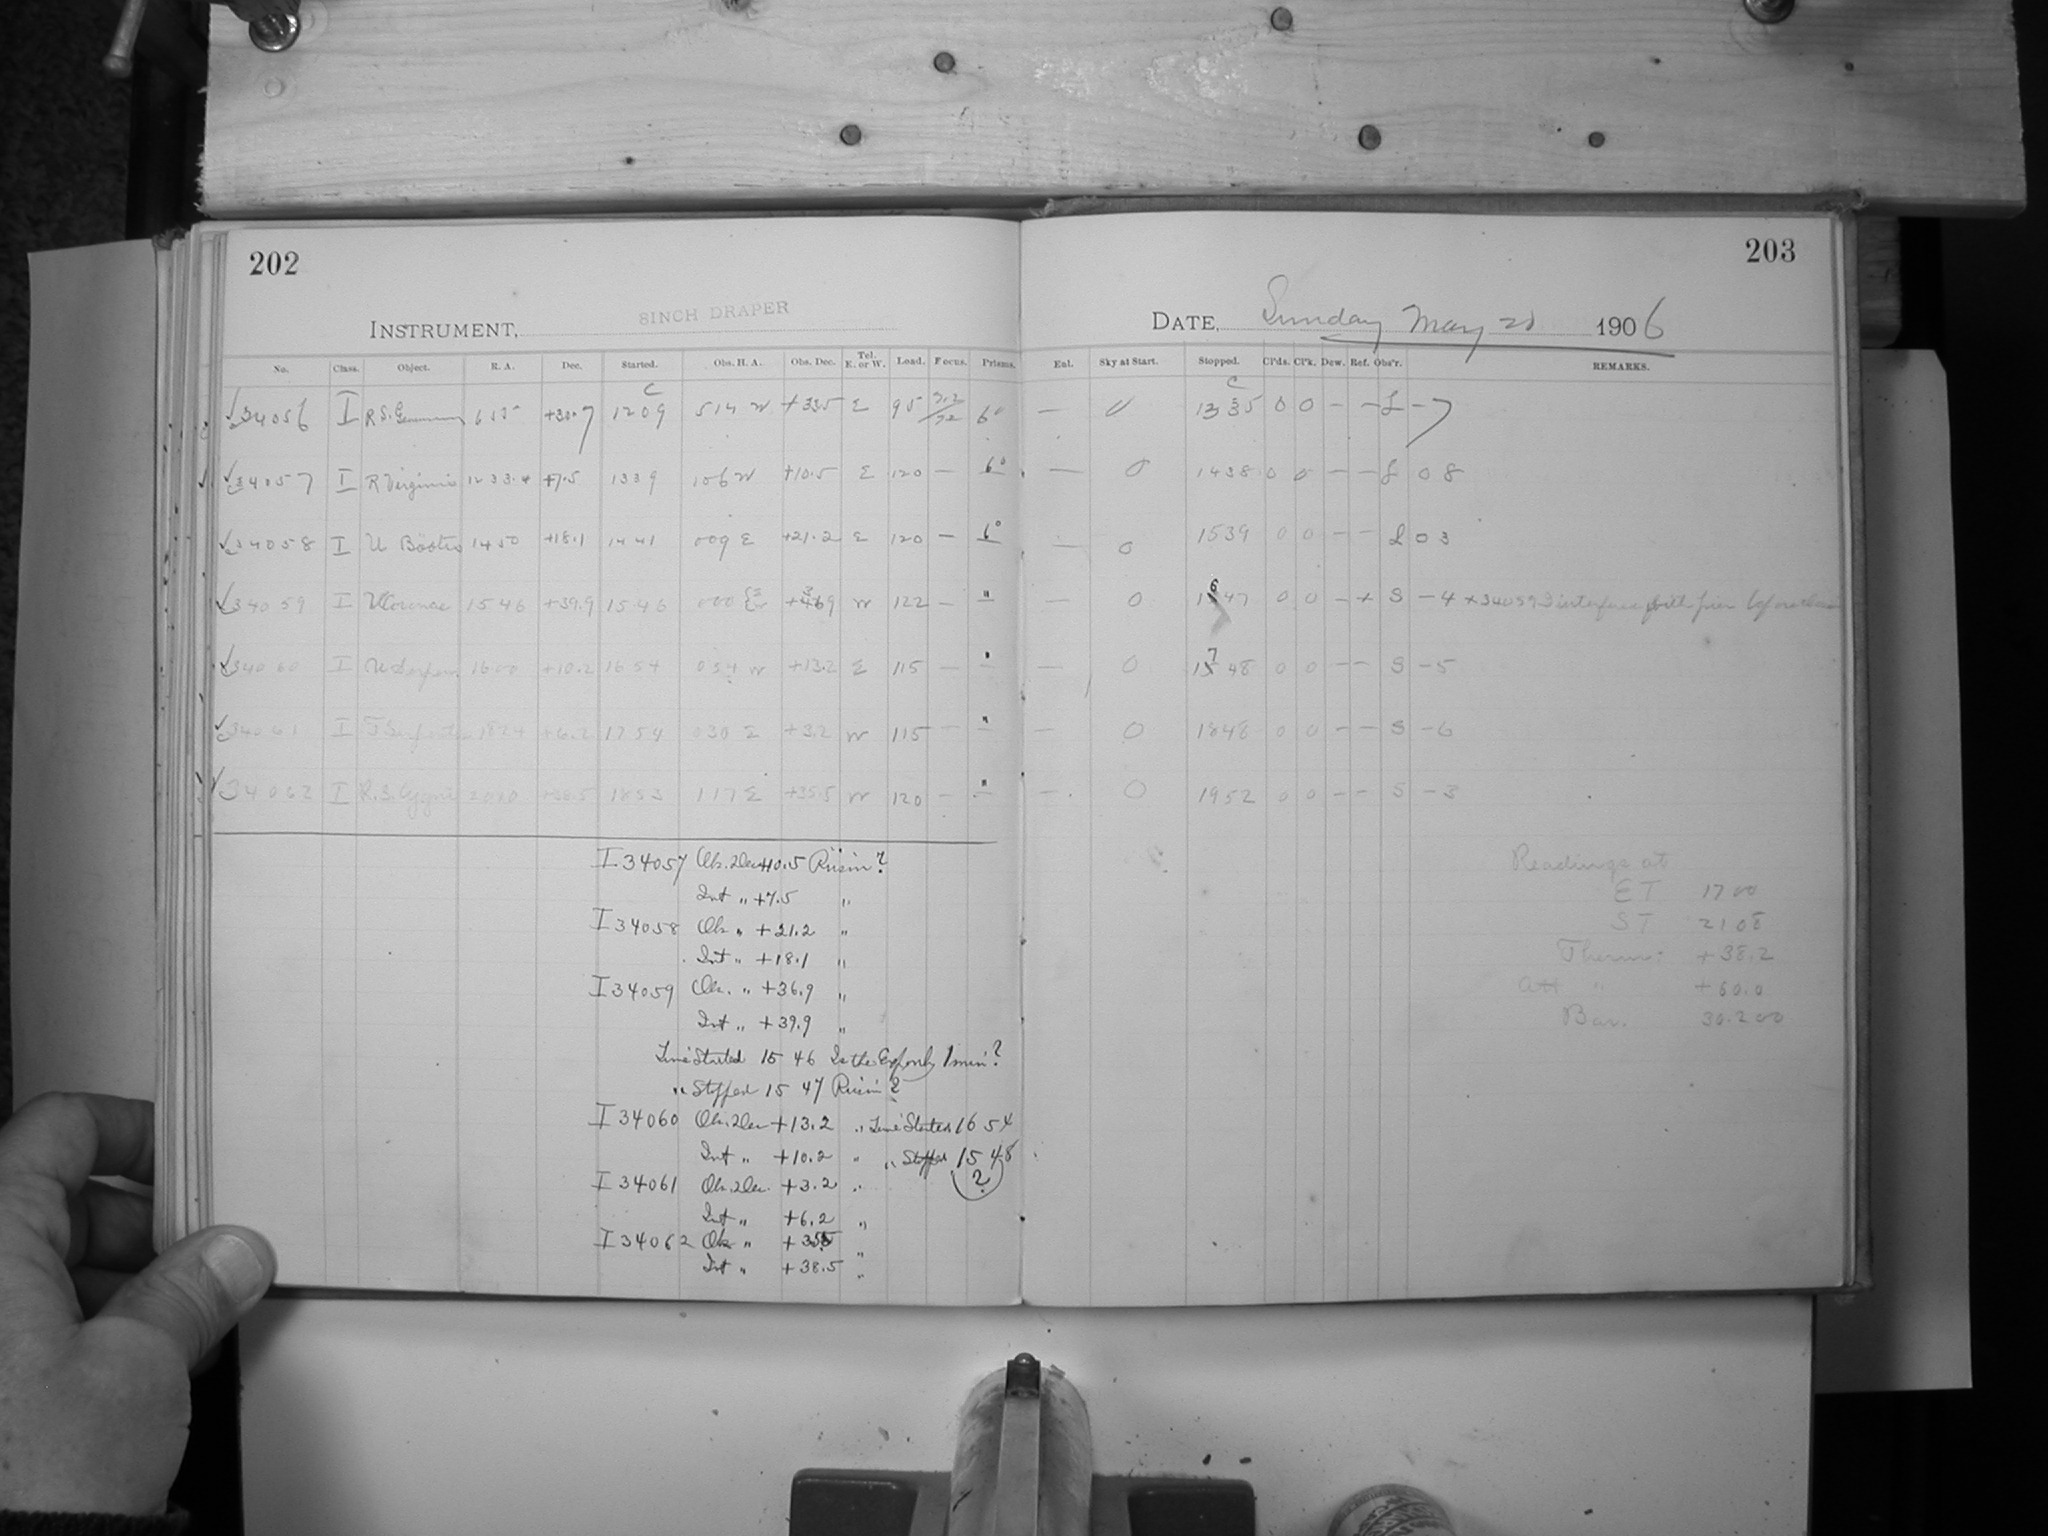 202
203
INSTRUMENT, 8INCH DRAPER
DATE, Sunday May 20 1906
No. Class. Object. R. A. Dec. Started. Obs. H. A. Obs. Dec. Tel. E. or W. Load. Focus. Prisms. Enl. Sky at Start. Stopped. Cl'ds. Cl'k. Dew. Ref. Obs'r. REMARKS.
C C
34056 I +30.7 1209 514 W +33.5 E 95 6° — 0 1335 0 0 — — L —7
34057 I R Virginis 12 33.4 +7.5 1339 106 W +10.5 E 120 — 6° — 0 1438 0 0 — — L 08
34058 I U Bootis 1450 +18.1 1441 009 E +21.2 E 120 — 6° — 0 1539 0 0 — — L 03
34059 I U Coronae 1546 +39.9 1546 000 W 122 — " — 0 1647 0 0 — + S —4 + 34059
34060 I U Serpen 1600 +10.2 1654 034 W +13.2 E 115 — " — 0 1748 0 0 — — S —5
34061 I 1824 +6.2 1754 030 E +3.2 W 115 — " — 0 1848 0 0 — — S —6
34062 I R.S. Cygni 2010 +38.5 1853 117 E +35.5 W 120 — " — 0 1952 0 0 — — S —3
I 34057 Ob. Dec +10.5 ?
Int " +7.5 "
I 34058 Ob " +21.2 "
Int " +18.1 "
I 34059 Ob. " +36.9 "
Int " +39.9 "
Time Started 15 46 Is the Exp only 1 min?
" Stopped 15 47 ?
I 34060 Ob. Dec +13.2 " Time Started 16 54
Int " +10.2 " " Stopped 15 48
?
I 34061 Ob. Dec. +3.2 "
Int " +6.2 "
I 34062 Ob " "
Int " +38.5 "
Readings at
ET 1700
ST 2108
Therm: +38.2
Att " +60.0
Bar. 30.200